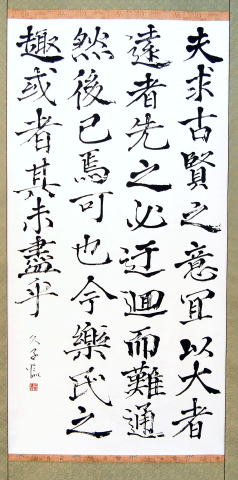 夫求古賢之意宜以大者
遠者先之必迂迴而難通
然後已焉可也今樂氏之
趣或者其未盡乎
久子臨